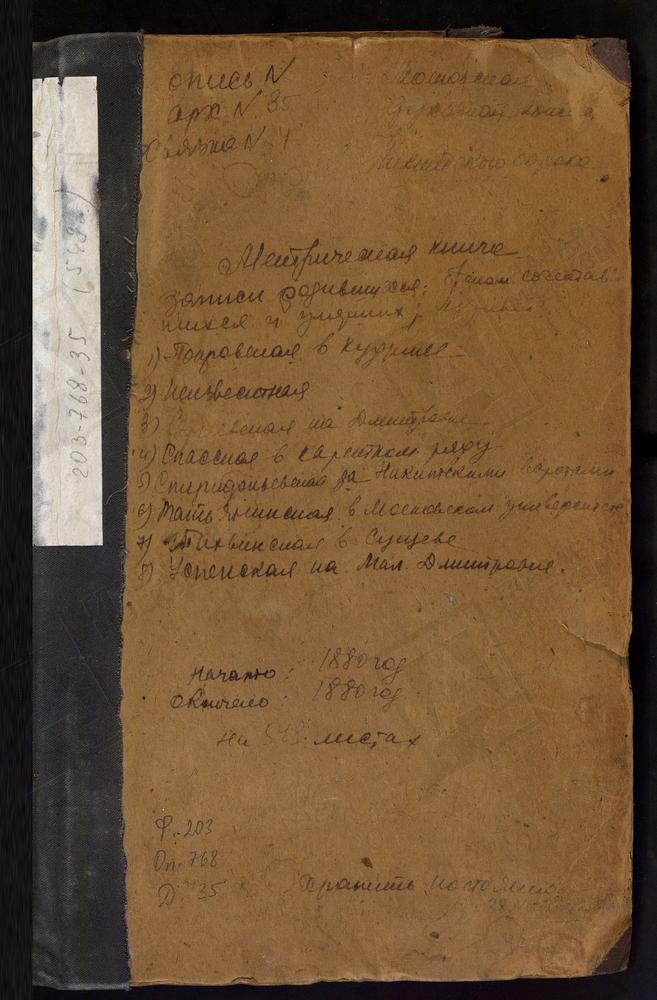 опись N
арх. N 35
Связка N 4
Московская
духовной консис
Никитского сорока
Метрическая книга
записи родившихся; браком сочетав
шихся и умерших, церквей
1) Покровская в Кудрине
2) Неизвестная
3) на Дмитровке
4) Спасская в каретном ряду
5) Спиридоньевская за Никитскими воротами
6) Татьянинская в Московском университете
7) Тихвинская в Сущеве
8) Успенская на Мал. Дмитровке.
Начато: 1880 год
Окончено: 1880 год
На листах
Ф.-203
Оп. 768
Д. 35
Хранить постоянно
203-768-35 (548а)